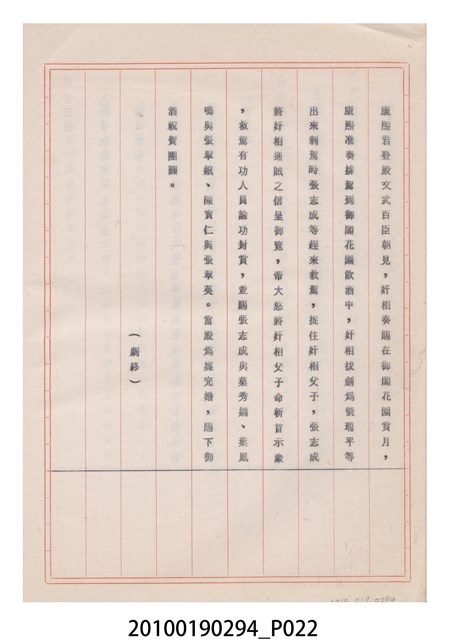 康熙君登殿文武百臣朝見，奸相奏賜在御閣花園賞月，
康熙准奏排駕到御閣花園飲酒中，奸相拔劍為號瑞平等
出來刺駕時張志成等趕來救駕，捉住奸相父子，張志成
將奸相通賊之信呈御覽，帝大怒將奸相父子命斬首示眾
，救駕有功人員論功封賞，並賜張志成與葉秀娟、葉鳳
鳴與張翠娥、陳寶仁與張翠英。當殿為媒完婚，賜下御
酒祝賀團圓。
（劇終）
20100190294_P022